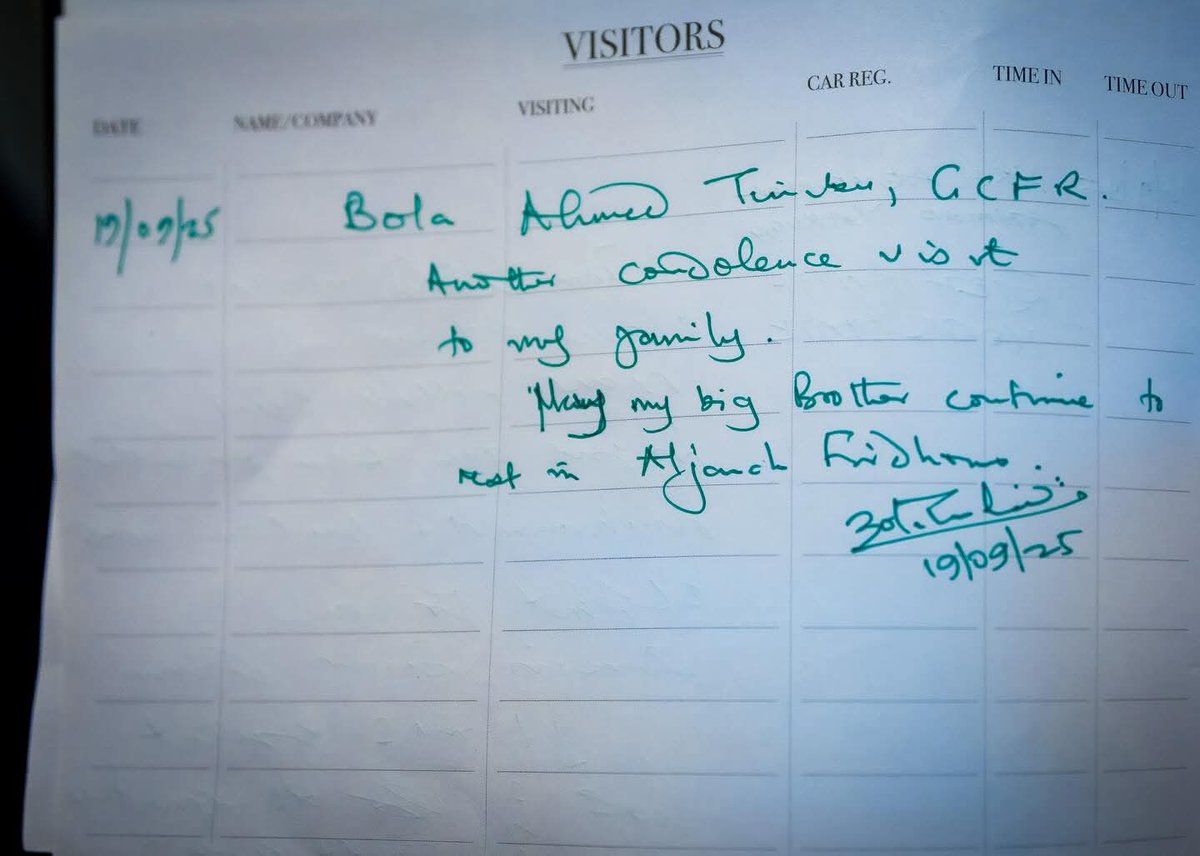 VISITORS
DATE NAME/COMPANY VISITING CAR REG. TIME IN TIME OUT
19/09/25 Bola Ahmed Tinubu, GCFR.
Another condolence visit
to my family.
May my big Brother continue to
rest in Aljanah Firdhous.
19/09/25